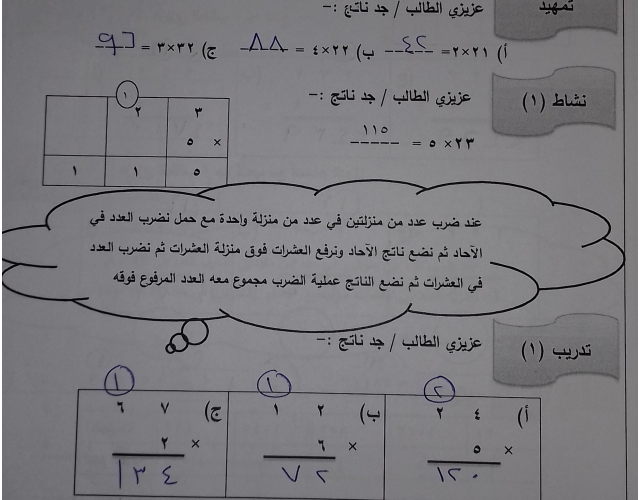 تمهيد
عزيزي الطالب / جد ناتج :–
أ) ٢١ ×٢= ٤٢ ب) ٢٢ ×٤ = ٨٨ ج) ٣٢ ×٣ = ٩٦
نشاط (١)
عزيزي الطالب / جد ناتج :–
٢٣ × ٥ = ١١٥
١
٢ ٣
× ٥
١ ١ ٥
عند ضرب عدد من منزلتين في عدد من منزلة واحدة مع حمل نضرب العدد في
الآحاد ثم نضع ناتج الآحاد ونرفع العشرات فوق منزلة العشرات ثم نضرب العدد
في العشرات ثم نضع الناتج عملية الضرب مجموع معه العدد المرفوع فوقه
تدريب (١)
عزيزي الطالب / جد ناتج :–
٢
أ) ٢ ٤
× ٥
١٢٠
١
ب) ١ ٢
× ٦
٧٢
١
ج) ٦ ٧
× ٢
١٣٤